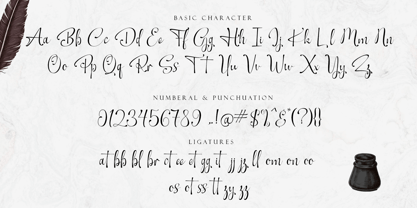 BASIC CHARACTER
Aa Bb Cc Dd Ee Ff Gg Hh Ii Jj Kk Ll Mm Nn
Oo Pp Qq Rr Ss Tt Uu Vv Ww Xx Yy Zz
NUMBERAL & PUNCHUATION
0123456789 .,!@#$%^&*(?)[]
LIGATURES
at bb bl br ct ee et gg it jj jz ll om on oo
os ot ss tt zy zz